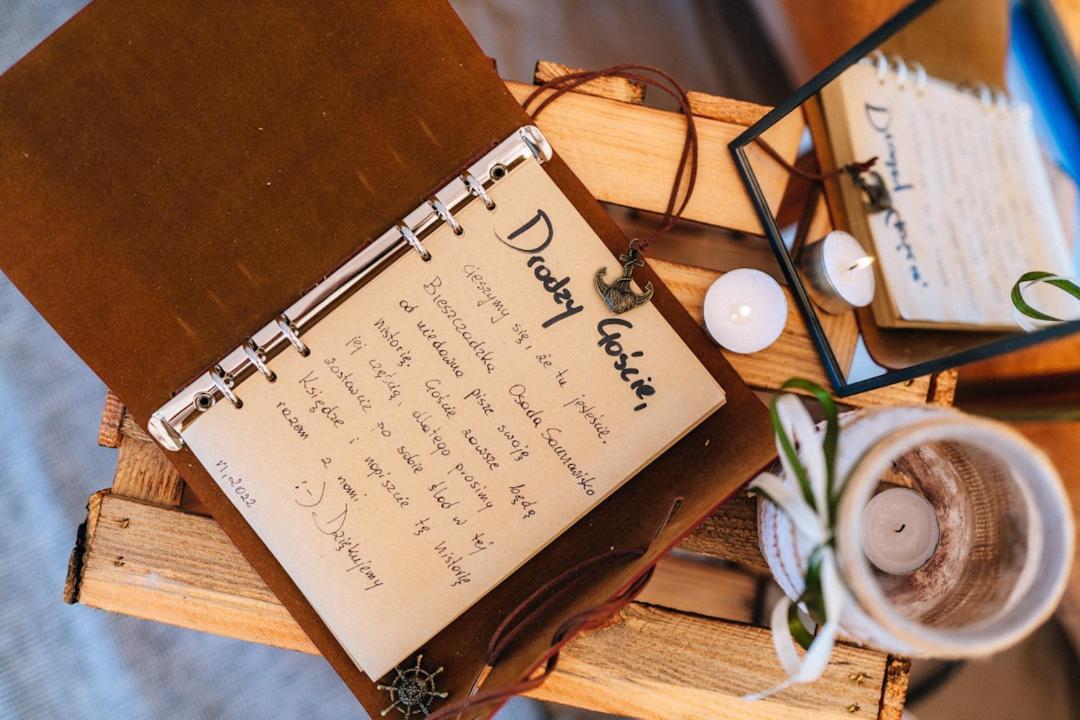 Drodzy Goście,
cieszymy się, że tu jesteście.
Bieszczadzka Osada Sosnowisko
od niedawna pisze swoją
historię. Goście zawsze będą
jej częścią, dlatego prosimy
zostawcie po sobie ślad w tej
Księdze i napiszcie tę historię
razem z nami.
:-) Dziękujemy
VI, 2022
Drodzy Goście,